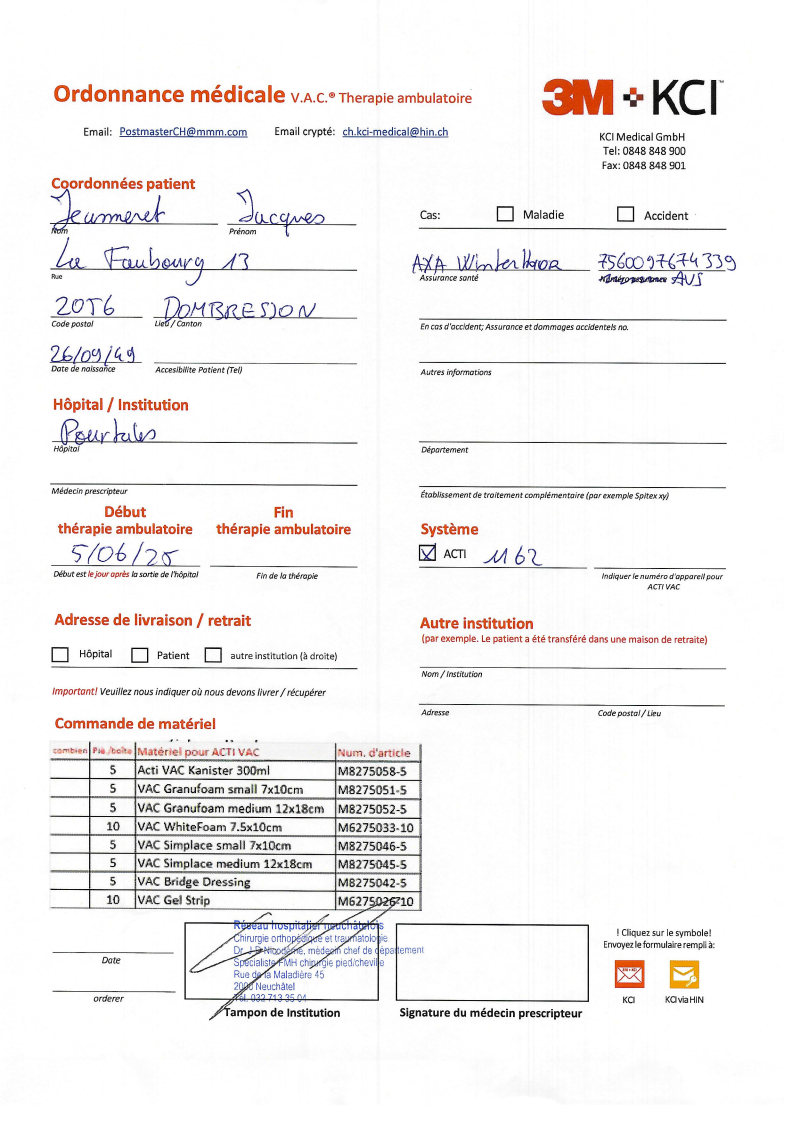 Ordonnance médicale V.A.C.® Therapie ambulatoire
3M KCI™
Email: PostmasterCH@mmm.com Email crypté: ch.kci-medical@hin.ch
KCI Medical GmbH
Tel: 0848 848 900
Fax: 0848 848 901
Coordonnées patient
Jeanneret Jacques
Nom Prénom
Cas: Maladie Accident
Le Faubourg 13
Rue
AXA Winterthour 7560097674339
Assurance santé Numéro assurance AVS
2056 DOMBRESSON
Code postal Lieu / Canton
En cas d'accident; Assurance et dommages accidentels no.
26/09/49
Date de naissance Accesibilite Patient (Tel)
Autres informations
Hôpital / Institution
Pourtales
Hôpital
Département
Médecin prescripteur
Établissement de traitement complémentaire (par exemple Spitex xy)
Début
thérapie ambulatoire
Fin
thérapie ambulatoire
5/06/25
Début est le jour après la sortie de l'hôpital
Fin de la thérapie
Système
ACTI M62
Indiquer le numéro d'appareil pour
ACTI VAC
Adresse de livraison / retrait
Hôpital Patient autre institution (à droite)
Important! Veuillez nous indiquer où nous devons livrer / récupérer
Autre institution
(par exemple. Le patient a été transféré dans une maison de retraite)
Nom / Institution
Adresse Code postal / Lieu
Commande de matériel
combien Pie./boîte Matériel pour ACTI VAC Num. d'article
5 Acti VAC Kanister 300ml M8275058-5
5 VAC Granufoam small 7x10cm M8275051-5
5 VAC Granufoam medium 12x18cm M8275052-5
10 VAC WhiteFoam 7.5x10cm M6275033-10
5 VAC Simplace small 7x10cm M8275046-5
5 VAC Simplace medium 12x18cm M8275045-5
5 VAC Bridge Dressing M8275042-5
10 VAC Gel Strip M6275026-10
Date
orderer
Réseau hospitalier neuchâtelois
Chirurgie orthopédique et traumatologie
Dr. J.D Nicodème, médecin chef de département
Spécialiste FMH chirurgie pied/cheville
Rue de la Maladière 45
2000 Neuchâtel
Tél. 032 713 35 04
Tampon de Institution
Signature du médecin prescripteur
! Cliquez sur le symbole!
Envoyez le formulaire rempli à:
3M+KCI
KCI KCI via HIN